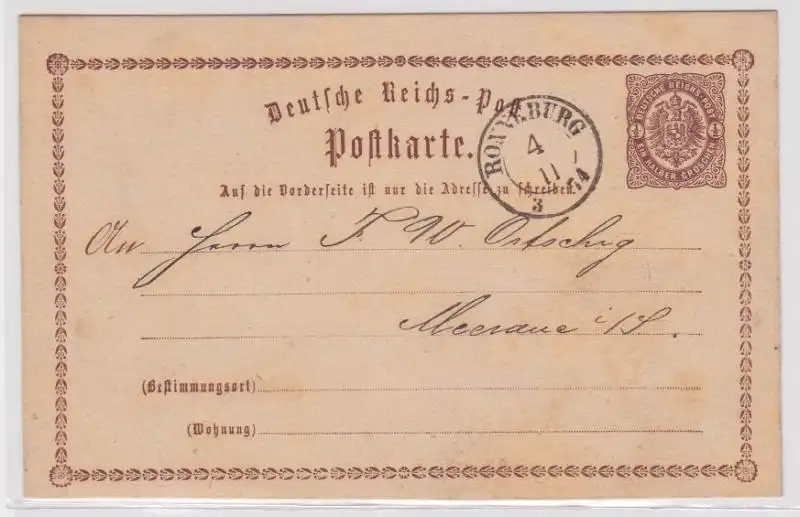 Deutsche Reichs-Post
Postkarte.
Auf die Vorderseite ist nur die Adresse zu schreiben.
DEUTSCHE REICHS-POST
½ ½
EIN HALBER GROSCHEN
RONNEBURG
4
11
74
3
An Herrn F. W.
Meerane i/S.
(Bestimmungsort)
(Wohnung)